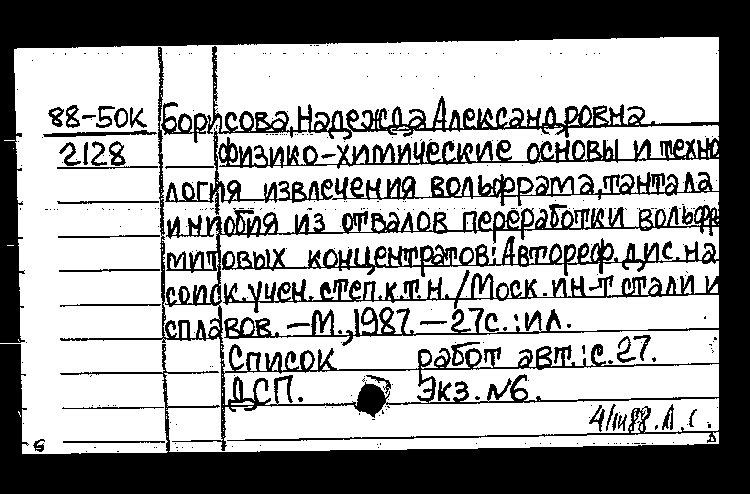 88-50К Борисова, Надежда Александровна.
2128 Физико-химические основы и техно
логия извлечения вольфрама, тантала
и ниобия из отвалов переработки вольфра
митовых концентратов: Автореф. дис. на
соиск. учен. степ. к.т.н. / Моск. ин-т стали и
сплавов. — М., 1987. — 27с. : ил.
Список работ авт.: с. 27.
ДСП. Экз. №6.
4/III 88. А. С.